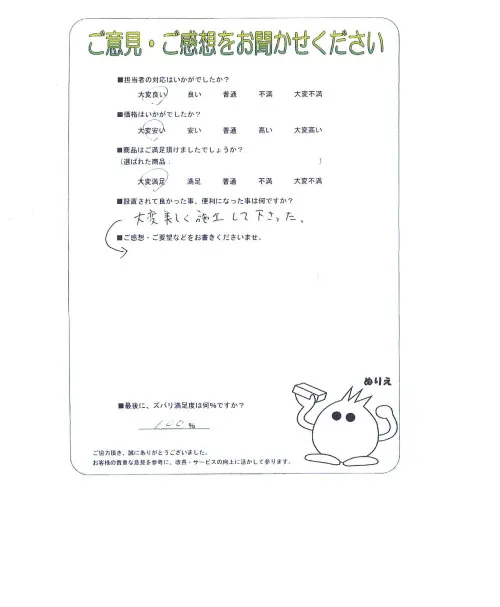 ご意見・ご感想をお聞かせください
■担当者の対応はいかがでしたか？
大変良い 良い 普通 不満 大変不満
■価格はいかがでしたか？
大変安い 安い 普通 高い 大変高い
■商品はご満足頂けましたでしょうか？
（選ばれた商品： ）
大変満足 満足 普通 不満 大変不満
■設置されて良かった事、便利になった事は何ですか？
大変美しく施工して下さった。
■ご感想・ご要望などをお書きくださいませ。
ぬりえ
■最後に、ズバリ満足度は何％ですか？
100 %
ご協力頂き、誠にありがとうございました。
お客様の貴重な意見を参考に、改善・サービスの向上に活かして参ります。